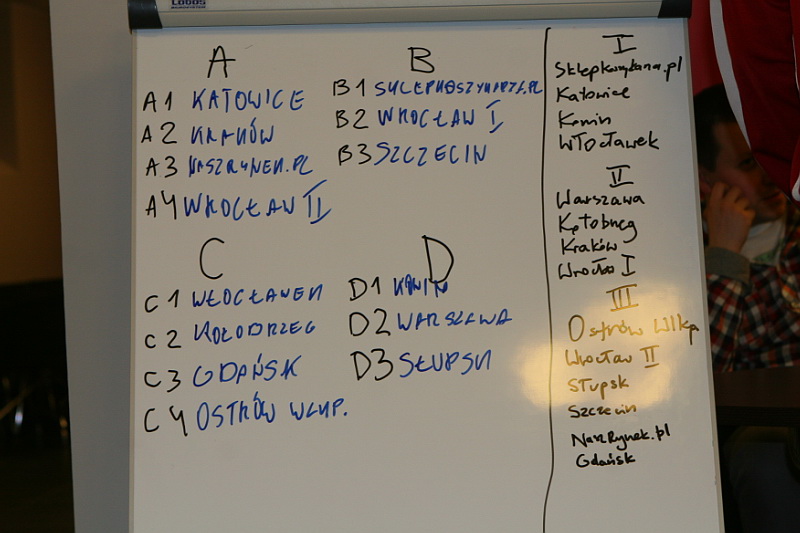 LOBOS
A
A1 KATOWICE
A2 KRAKÓW
A3 NASZRYNEK.PL
A4 WROCŁAW II
B
B1 SKLEPKOSZYKARZA.PL
B2 WROCŁAW I
B3 SZCZECIN
C
C1 WŁOCŁAWEK
C2 KOŁOBRZEG
C3 GDAŃSK
C4 OSTRÓW WLKP.
D
D1 KONIN
D2 WARSZAWA
D3 SŁUPSK
I
Katowice
Konin
Włocławek
II
Warszawa
Kraków
Wrocław I
III
Ostrów Wlkp
Wrocław II
Słupsk
Szczecin
NaszRynek.pl
Gdańsk